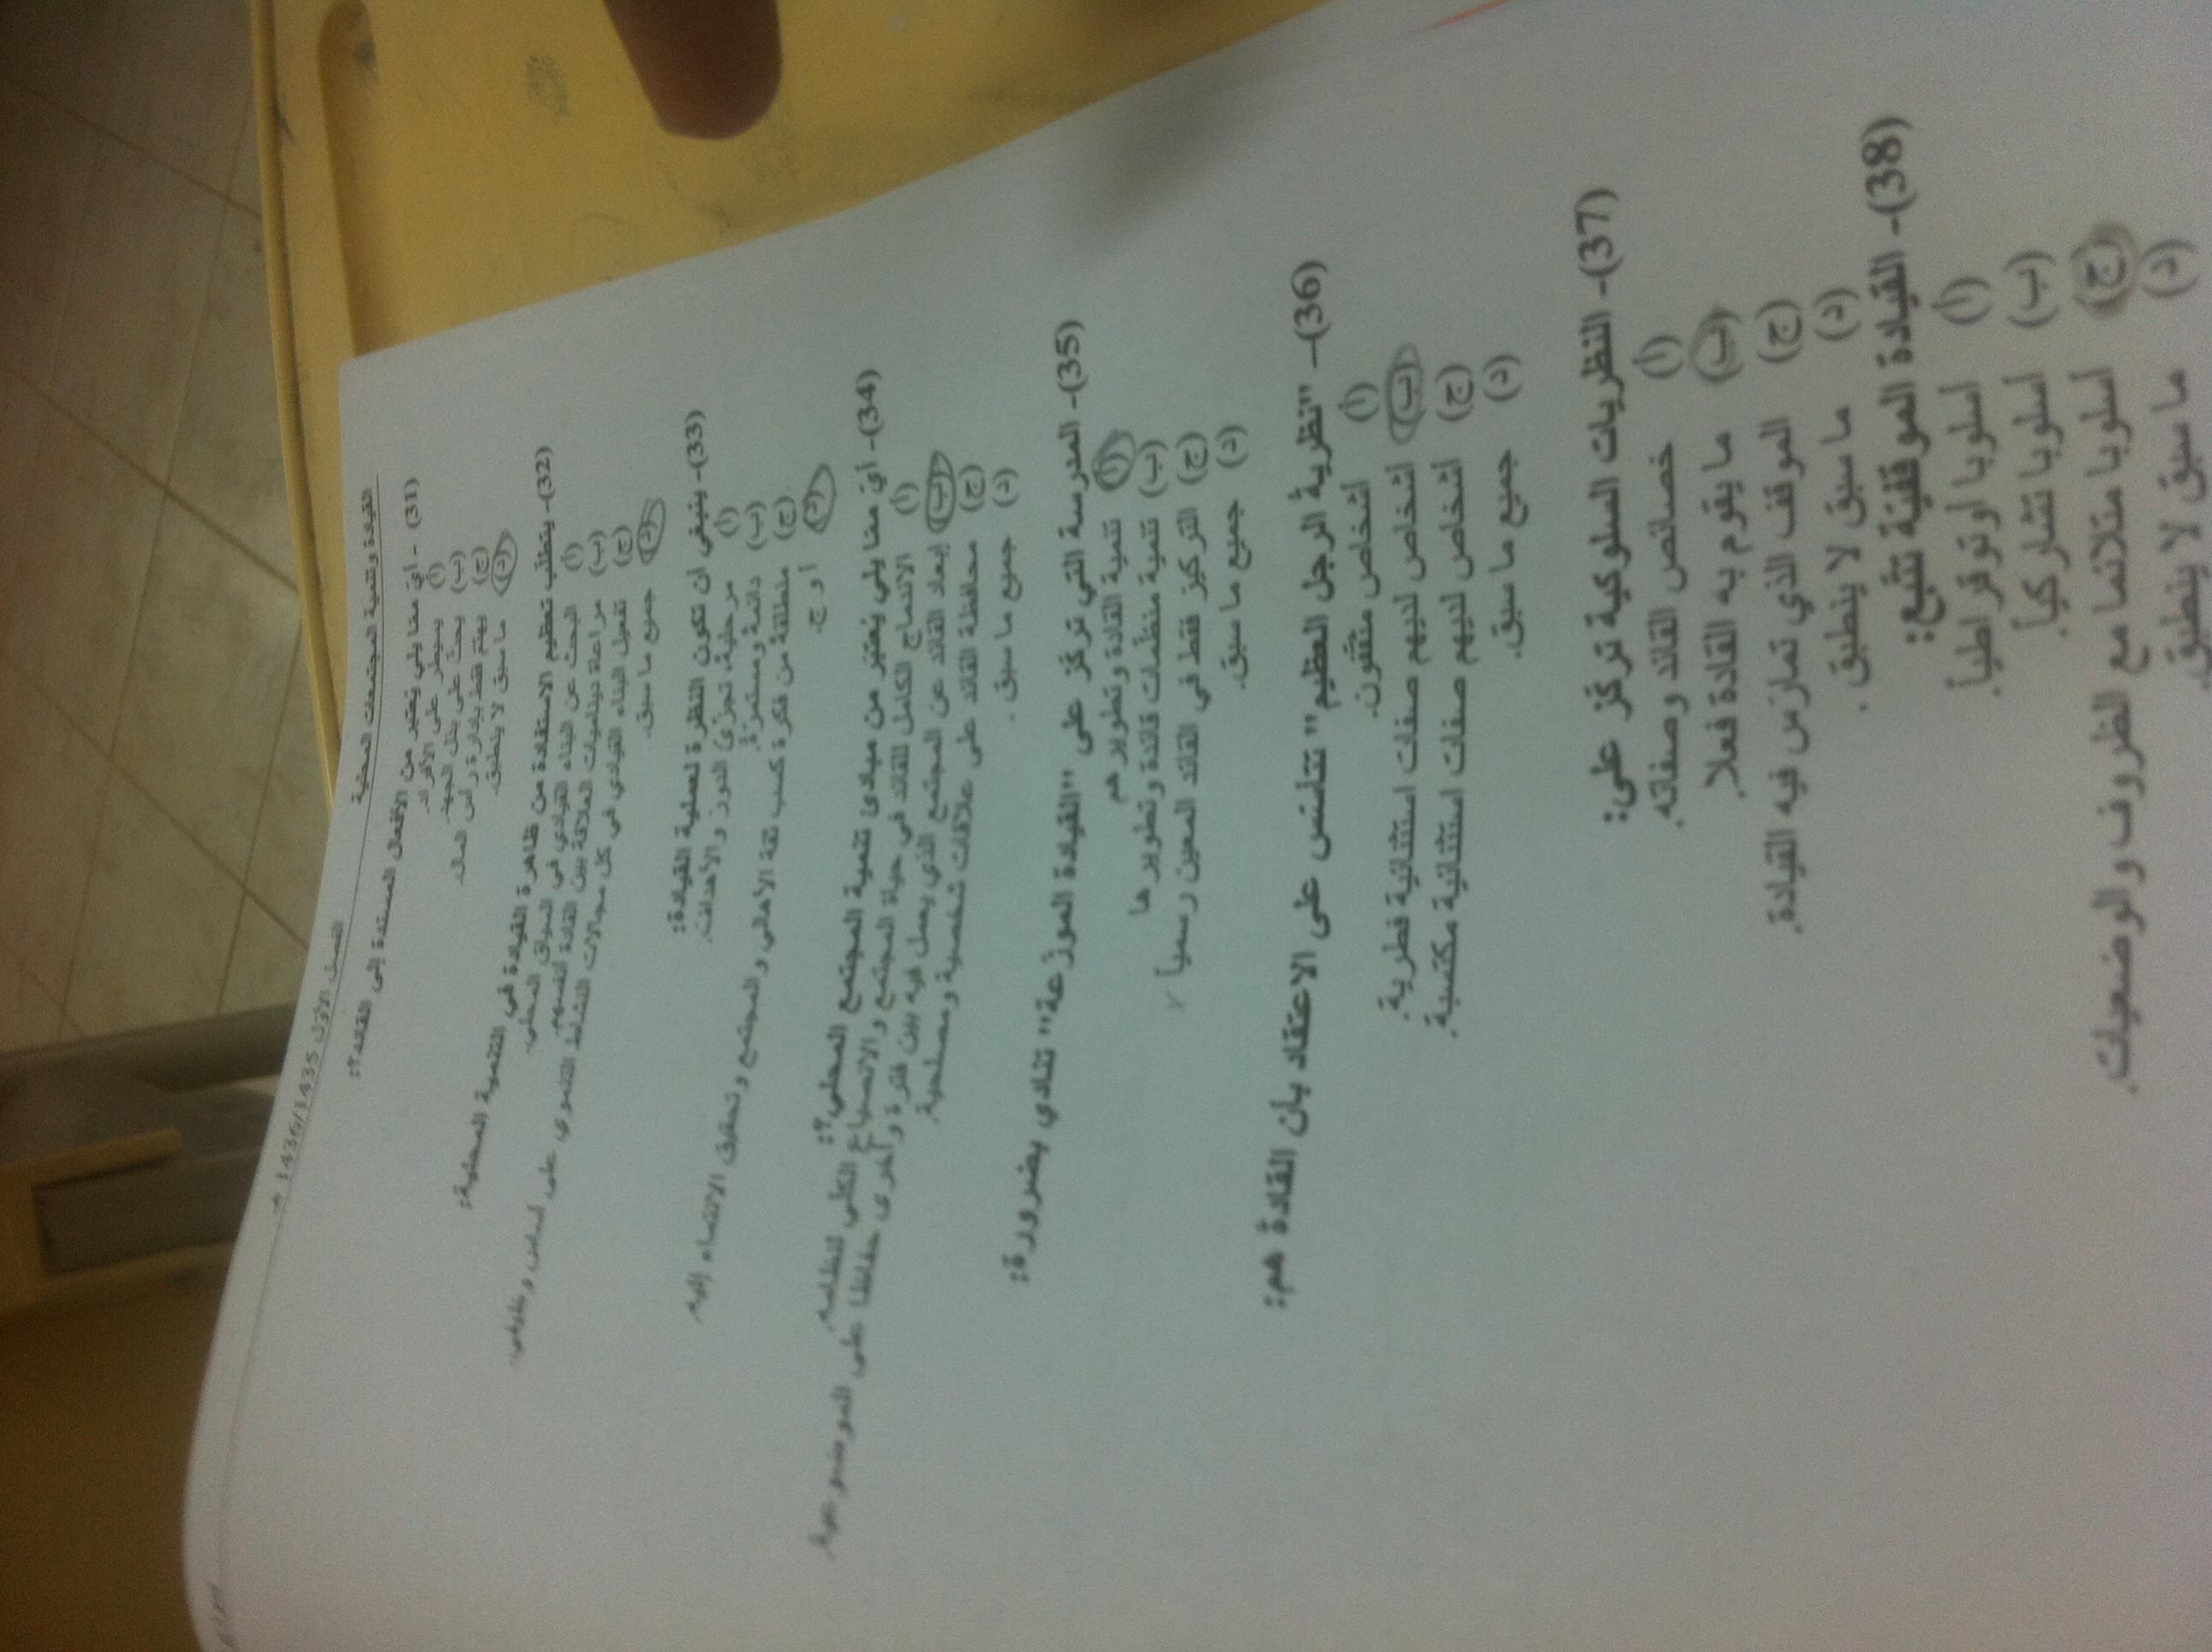 القيادة وتنمية المجتمعات المحلية
الفصل الأول 1436/1435
(31) - أي مما يلي يُعتبر من الأفعال المسندة إلى القائد؟:
(أ) يسيطر على الأفراد.
(ب) يحث على بذل الجهد.
(ج) يهتم فقط بإدارة رأس المال.
(د) ما سبق لا ينطبق.
(32)- يتطلب تعظيم الاستفادة من ظاهرة القيادة في التنمية المحلية:
(أ) البحث عن البناء القيادي في السياق المحلي.
(ب) مراعاة ديناميات العلاقة بين القادة أنفسهم.
(ج) تفعيل البناء القيادي في كل مجالات النشاط التنموي على أساس وظيفي.
(د) جميع ما سبق.
(33)- ينبغي أن تكون النظرة لعملية القيادة:
(أ) مرحلية، تجزئ الدور والأهداف.
(ب) دائمة ومستمرة.
(ج) منطلقة من فكرة كسب ثقة الأهالي والمجتمع وتحقيق الانتماء إليه.
(د) أ و ج.
(34)- أي مما يلي يُعتبر من مبادئ تنمية المجتمع المحلي؟:
(أ) الاندماج الكامل للقائد في حياة المجتمع والانصياع الكلي لنظامه.
(ب) إبعاد القائد عن المجتمع الذي يعمل فيه بين فترة وأخرى حفاظا على الموضوعية.
(ج) محافظة القائد على علاقات شخصية ومصلحية.
(د) جميع ما سبق.
(35)- المدرسة التي تركز على "القيادة الموزعة" تنادي بضرورة:
(أ) تنمية القادة وتطويرهم
(ب) تنمية منظمات قائدة وتطويرها
(ج) التركيز فقط في القائد المعين رسمياً
(د) جميع ما سبق.
(36)- "نظرية الرجل العظيم" تتأسس على الاعتقاد بأن القادة هم:
(أ) أشخاص مثقفون.
(ب) أشخاص لديهم صفات استثنائية فطرية.
(ج) أشخاص لديهم صفات استثنائية مكتسبة.
(د) جميع ما سبق.
(37)- النظريات السلوكية تركز على:
(أ) خصائص القائد وصفاته.
(ب) ما يقوم به القادة فعلا.
(ج) الموقف الذي تمارس فيه القيادة.
(د) ما سبق لا ينطبق.
(38)- القيادة الموقفية تتبع:
(أ) أسلوبا أوتوقراطياً.
(ب) أسلوبا تشاركياً.
(ج) أسلوبا متلائما مع الظروف والوضعيات.
(د) ما سبق لا ينطبق.